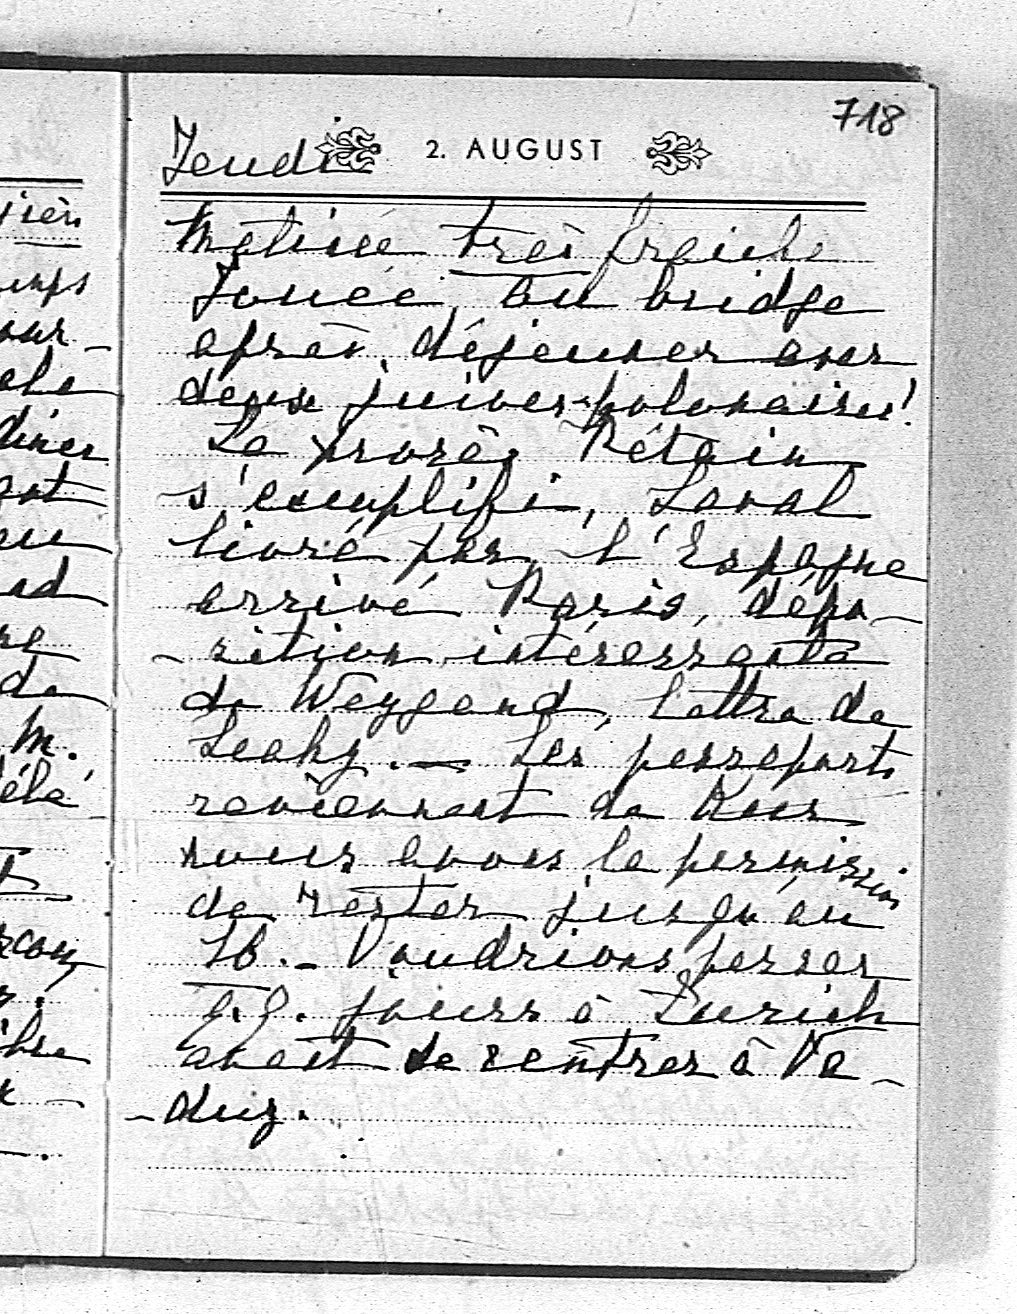 718
Jeudi 2. AUGUST
Matinée très fraiche
Jouée au bridge
après déjeuner avec
deux juives polonaises!
Le procès Pétain
s'emplifi, Laval
livré par l'Espagne
arrivé Paris, dépo-
-sition intéressante
de Weygand, lettre de
Leahy. — Les passeports
reviennent de
nous avons la permission
de rester jusqu'au
16. - Voudrions passer
q.q. jours à Zurich
avant de rentrer à Va-
-duz.